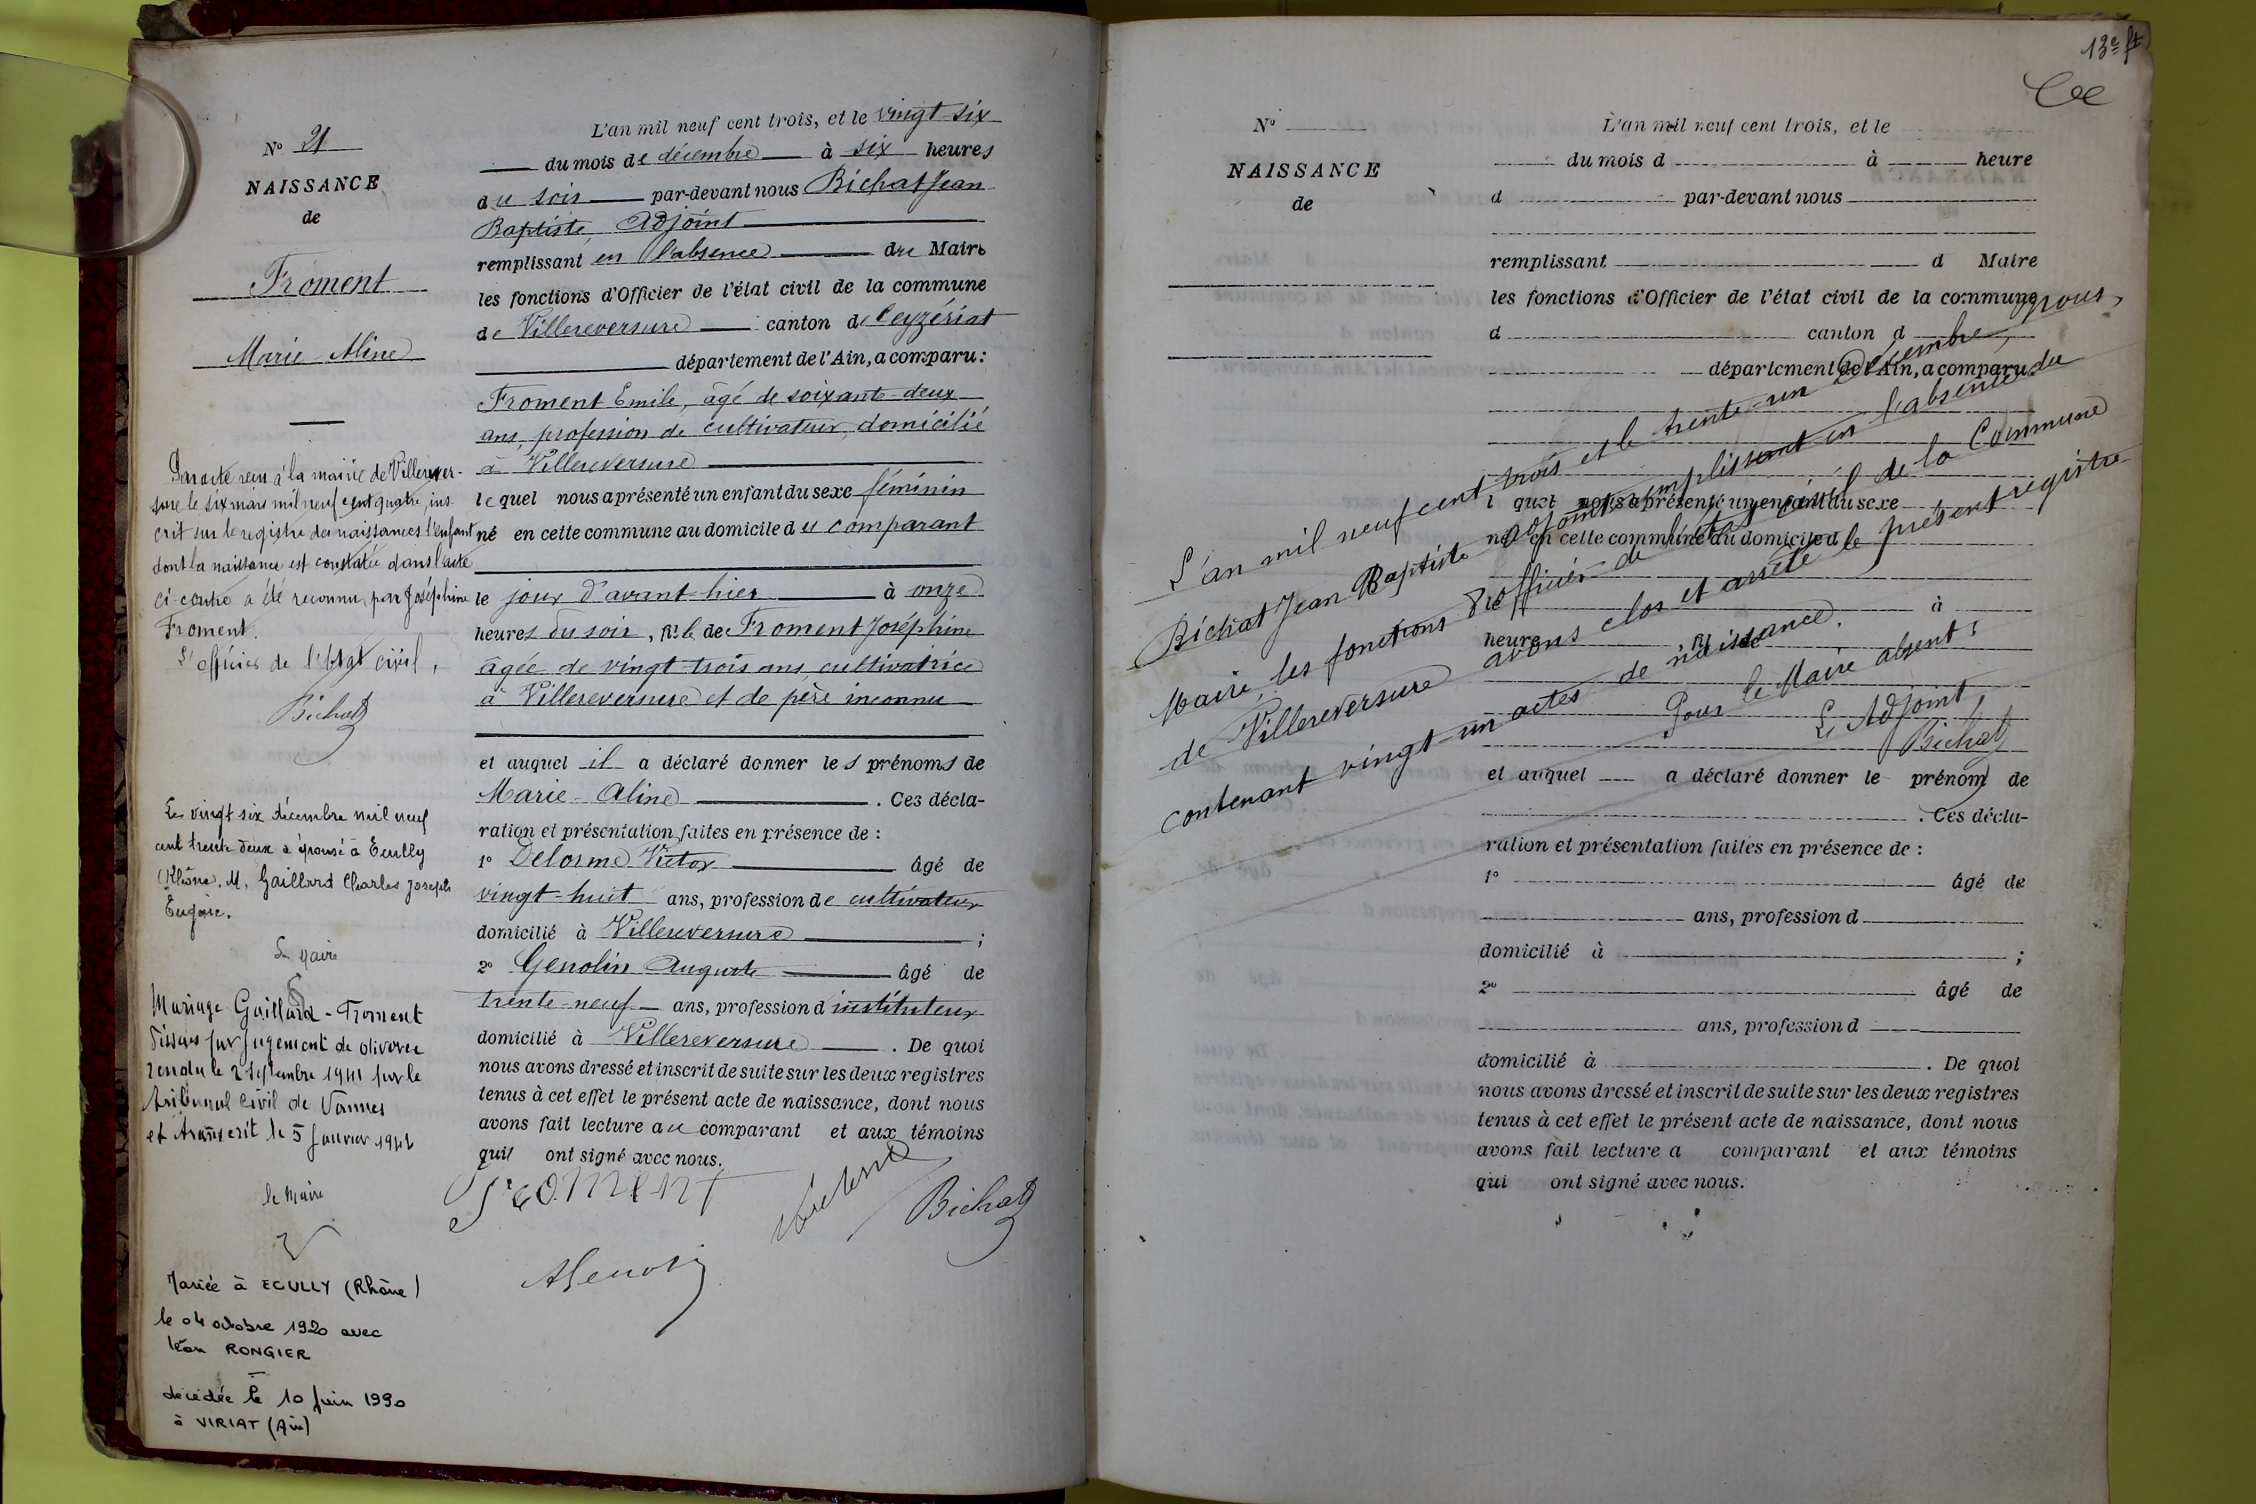 N° 21
NAISSANCE
de
Froment
Marie Aline
Par acte reçu à la mairie de Villerever-
sure le six mars mil neuf cent quatre, ins-
crit sur le registre des naissances l'enfant
dont la naissance est constatée dans l'acte
ci-contre a été reconnu par Joséphine
Froment.
L'officier de l'état civil,
Bichat
Le vingt six décembre mil neuf
cent trente deux a épousé à Ecully
(Rhône). M. Gaillard Charles Joseph
Eugène.
Le Maire
Mariage Gaillard - Froment
dissous par jugement de divorce
rendu le 2 septembre 1941 par le
tribunal civil de Vannes
et transcrit le 5 Janvier 1942
le Maire
Mariée à ECULLY (Rhône)
le 04 octobre 1920 avec
Léon RONGIER
décédée le 10 Juin 1990
à VIRIAT (Ain)
L'an mil neuf cent trois, et le vingt-six
du mois de décembre à six heures
du soir par-devant nous Bichat Jean
Baptiste, Adjoint
remplissant en l'absence du Maire
les fonctions d'Officier de l'état civil de la commune
de Villereversure canton de Ceyzériat
département de l'Ain, a comparu:
Froment Emile, âgé de soixante-deux
ans, profession de cultivateur, domicilié
à Villereversure
lequel nous a présenté un enfant du sexe féminin
né en cette commune au domicile du comparant
le jour d'avant-hier à onze
heures du soir, fille de Froment Joséphine
âgée de vingt-trois ans, cultivatrice
à Villereversure et de père inconnu
et auquel il a déclaré donner les prénoms de
Marie-Aline . Ces décla-
ration et présentation faites en présence de :
1° Delorme Victor âgé de
vingt-huit ans, profession de cultivateur
domicilié à Villereversure ;
2° Genolin Auguste âgé de
trente-neuf ans, profession d'instituteur
domicilié à Villereversure . De quoi
nous avons dressé et inscrit de suite sur les deux registres
tenus à cet effet le présent acte de naissance, dont nous
avons fait lecture au comparant et aux témoins
qui ont signé avec nous.
Froment
Bichat
AGenolin
13e ft
N°
NAISSANCE
de
L'an mil neuf cent trois, et le
du mois d à heure
d par-devant nous
remplissant d Maire
les fonctions d'Officier de l'état civil de la commune
d canton d
département de l'Ain, a comparu:
l quel nous a présenté un enfant du sexe
né en cette commune au domicile d
le à
heure , fil de
et auquel a déclaré donner le prénom de
. Ces décla-
ration et présentation faites en présence de :
1° âgé de
ans, profession d
domicilié à ;
2° âgé de
ans, profession d
domicilié à . De quoi
nous avons dressé et inscrit de suite sur les deux registres
tenus à cet effet le présent acte de naissance, dont nous
avons fait lecture a comparant et aux témoins
qui ont signé avec nous.
L'an mil neuf cent trois et le trente-un Décembre, nous,
Bichat Jean Baptiste Adjoint remplissant en l'absence du
Maire, les fonctions d'officier de l'état civil de la Commune
de Villereversure avons clos et arrêté le présent registre
contenant vingt-un actes de naissance.
Pour le Maire absent,
L'Adjoint,
Bichat